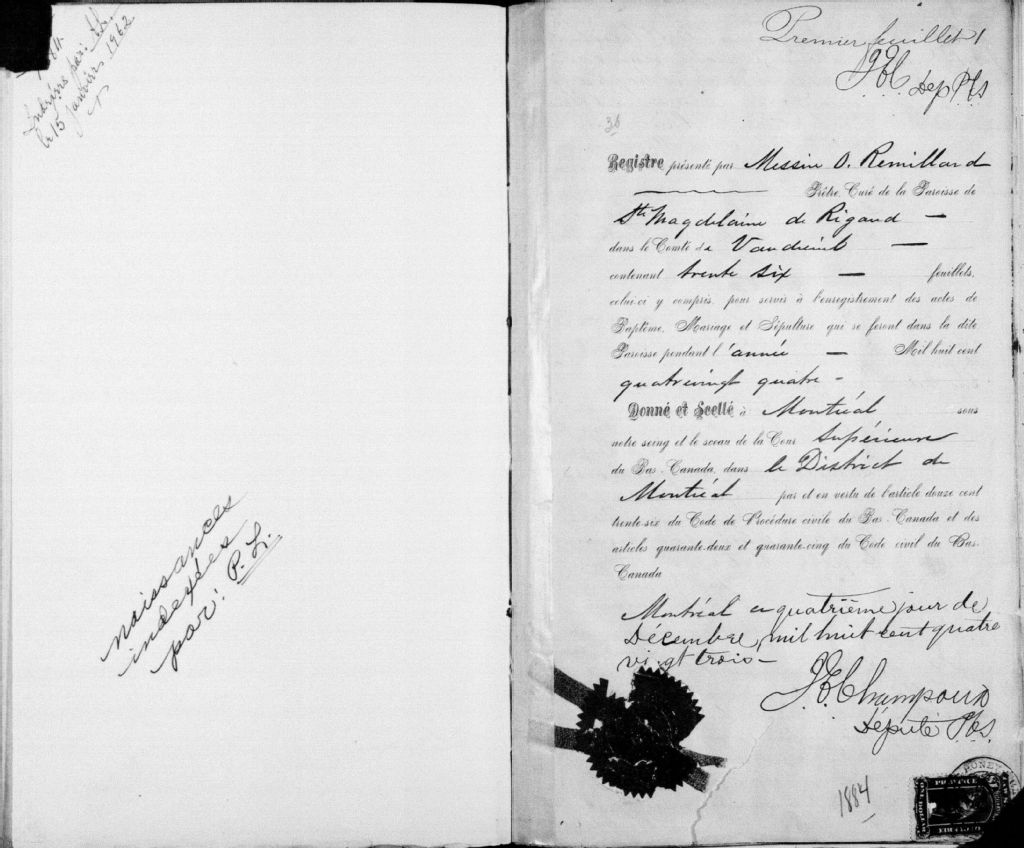 Indexés par:
le 15 janvier 1962
naissances
indexées
par: P. L.
Premier feuillet 1
Dep P.C.S
36
Registre présenté par Messire O. Remillard
Prêtre, Curé de la Paroisse de
Ste Magdelaine de Rigaud —
dans le Comté de Vaudreuil —
contenant trente six — feuillets,
celui-ci y compris, pour servir à l'enregistrement des actes de
Baptême, Mariage et Sépulture qui se feront dans la dite
Paroisse pendant l'année — Mil huit cent
quatrevingt quatre -
Donné et Scellé à Montréal sous
notre seing et le sceau de la Cour Supérieure
du Bas-Canada, dans le District de
Montréal par et en vertu de l'article douze cent
trente-six du Code de Procédure civile du Bas-Canada et des
articles quarante-deux et quarante-cinq du Code civil du Bas-
Canada
Montréal ce quatrième jour de
Décembre, mil huit cent quatre
vingt trois -
J.B. Champoux
Député P.C.S.
1884
PROVINCE